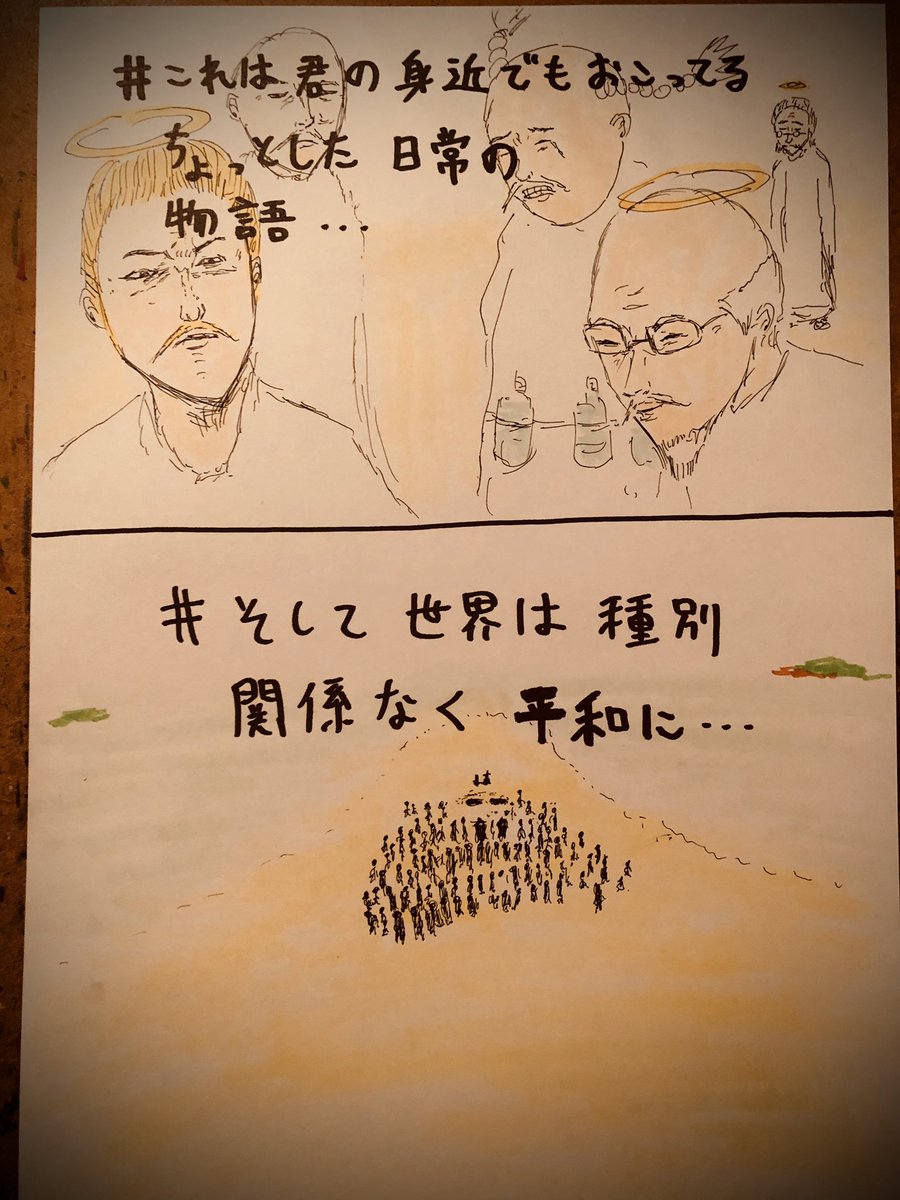 #これは君の身近でもおこってる
ちょっとした日常の
物語…
#そして世界は種別
関係なく平和に…